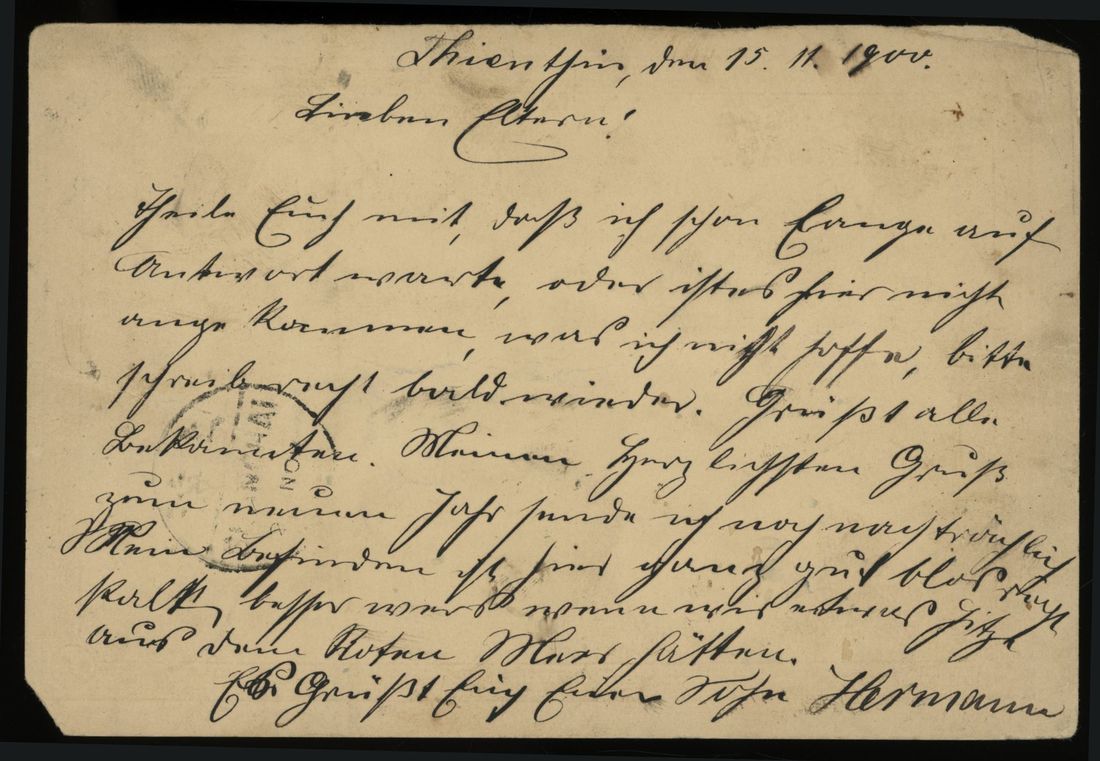 Thienthin, den 15. 11. 1900.
Lieben Eltern!
Theile Euch mit, daß ich schon Lange auf
Antwort warte, oder ist es hier nicht
ange kommen, was ich nicht hoffe, bitte
schreib recht bald wieder. Grüßt alle
Bekannten. Meinen Herzlichsten Gruß
zum neuen Jahr sende ich noch nachträchlich
Mein Befinden ist hier ganz gut blos recht
kalt, besser wers wenn wir etwas Hitze
aus dem Roten Meer hätten.
Es Grüßt Euch Euer Sohn Hermann